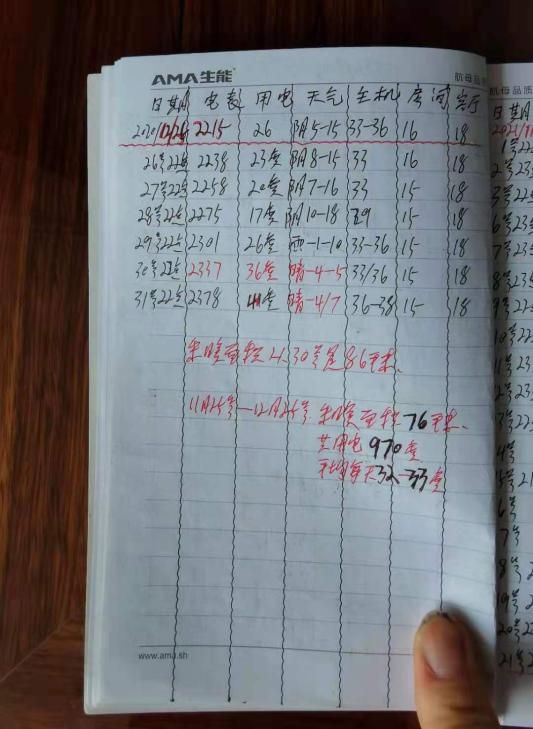 AMA生能 航母品质
日期 电表 用电 天气 主机 房间 客厅
2215 26 阴5-15 33-36 16 18
26号22点 2238 23度 阴8-15 33 16 18
27号22点 2258 20度 阴7-16 33 15 18
28号22点 2275 17度 阴10-18 29 15 18
29号22点 2301 26度 雨-1-10 33-36 15 18
30号22点 2337 36度 晴-4-5 33/36 15 18
31号22点 2378 41度 晴-4/7 36-38 15 18
采暖面积 86平米、
11月25号—12月25号 采暖面积76平米、
共用电970度
平均每天32-33度
www.ama.sh
航母品质
日期
2021/1/1
1号22
2号23
3号22
6号23
7号23
8号23
9号22
10号22
11号23
12号23
13号22
14号
15号21
16号
17号
18号2
19号2
20号2
21号2